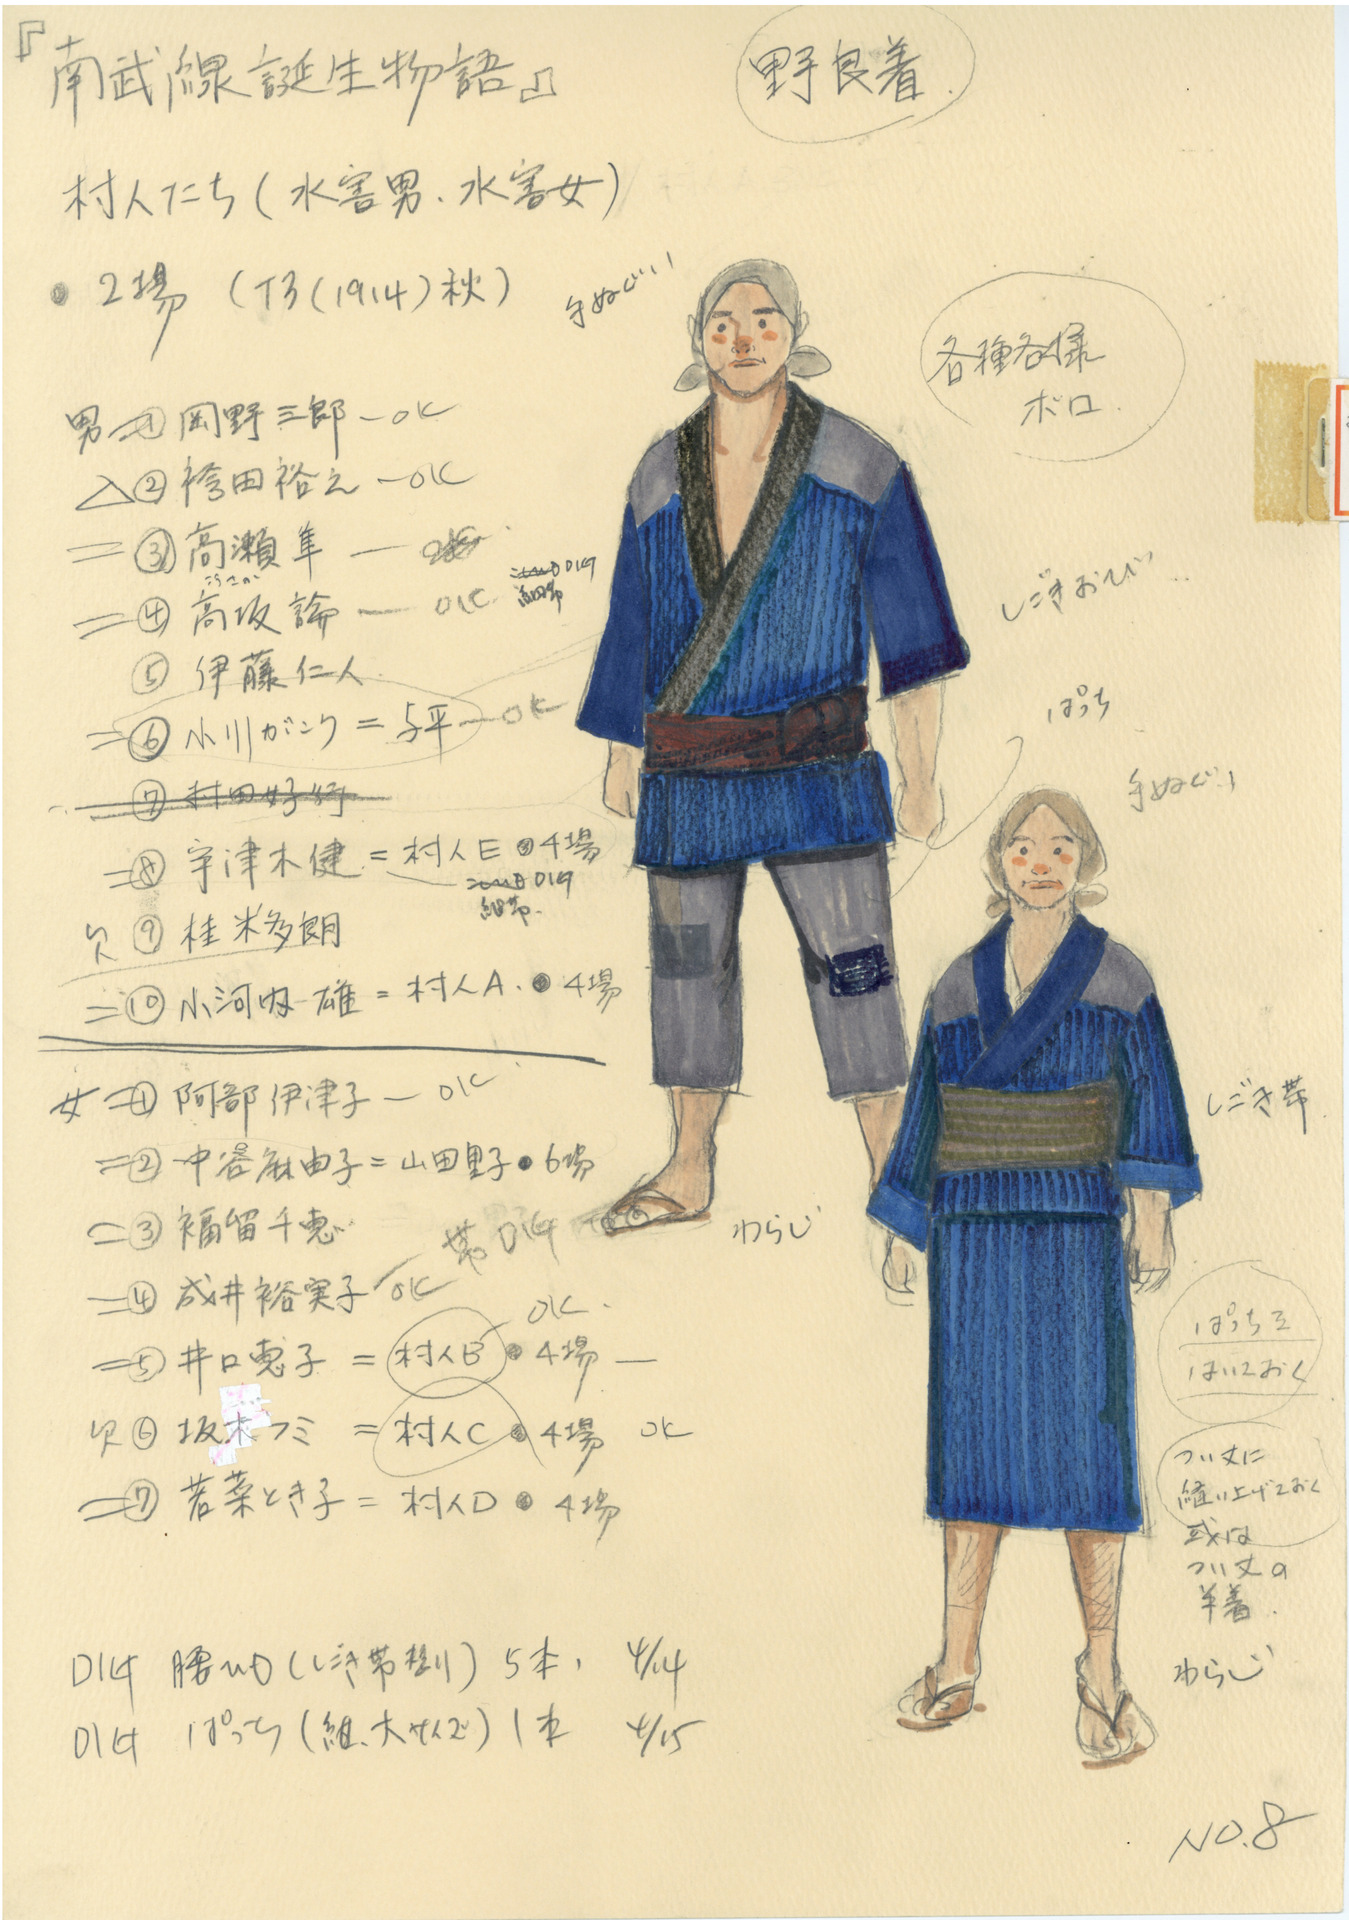 『南武線誕生物語』
野良着
村人たち(水害男、水害女)
2場 (T3(1914)秋)
手ぬぐい
各種各様
ボロ
男 ① 岡野三郎 — OK
② 袴田裕之 — OK
③ 高瀬隼 —
④ 高坂諭 — OK
こうさか
しごきおび
⑤ 伊藤仁人
⑥ 小川がこう = 与平 — OK
ぱっち
⑦ 村田好行
手ぬぐい
⑧ 宇津木健 = 村人E 4場
欠 ⑨ 桂米多朗
⑩ 小河内一雄 = 村人A. 4場
女 ① 阿部伊津子 — OK
しごき帯
② 中谷麻由子 = 山田里子 6場
③ 福留千恵
わらじ
④ 成井裕実子 OK
⑤ 井口恵子 = 村人B 4場 —
OK
ぱっちを
はいておく
欠 ⑥ 坂本フミ = 村人C 4場 OK
⑦ 若菜とき子 = 村人D 4場
つい丈に
縫い上げておく
或は
つい丈の
半着.
わらじ
腰ひも(しごき帯替り) 5本, 4/14
ぱっち(紺、大サイズ) 1本 4/15
NO.8